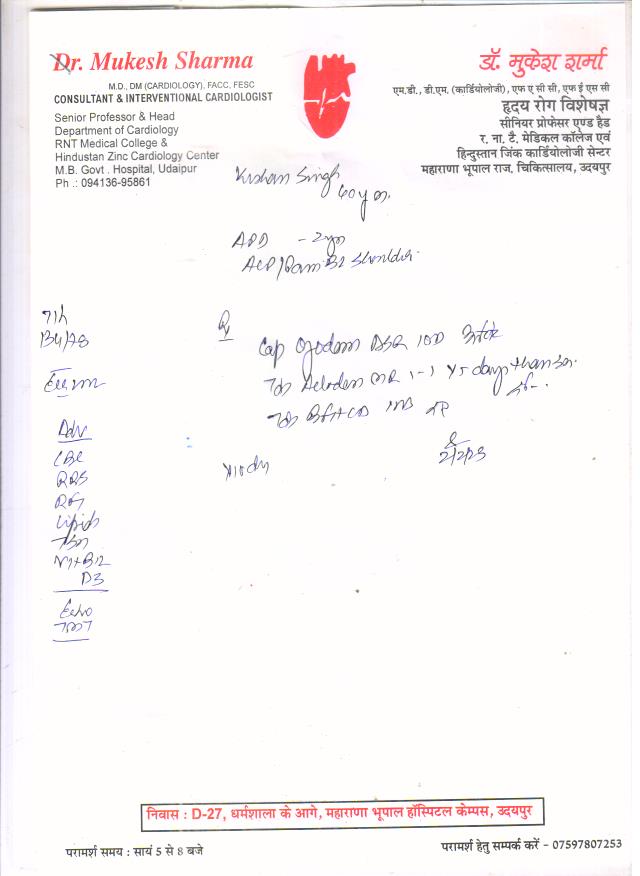 Dr. Mukesh Sharma
M.D., DM (CARDIOLOGY), FACC, FESC
CONSULTANT & INTERVENTIONAL CARDIOLOGIST
Senior Professor & Head
Department of Cardiology
RNT Medical College &
Hindustan Zinc Cardiology Center
M.B. Govt . Hospital, Udaipur
Ph .: 094136-95861
डॉ. मुकेश शर्मा
एम.डी., डी.एम. (कार्डियोलॉजी), एफ ए सी सी, एफ ई एस सी
हृदय रोग विशेषज्ञ
सीनियर प्रोफेसर एण्ड हैड
र. ना. टै. मेडिकल कॉलेज एवं
हिन्दुस्तान जिंक कार्डियोलॉजी सेन्टर
महाराणा भूपाल राज. चिकित्सालय, उदयपुर
Singh
60 y m.
APD
Shoulder
Rx
Cap DSR 10D
Tab MR 1-1 x 5 days than
Tab
x 10 day
2/2/23
Adv
CBC
RBS
RFT
Lipids
D3
Echo
TMT
निवास : D-27, धर्मशाला के आगे, महाराणा भूपाल हॉस्पिटल केम्पस, उदयपुर
परामर्श समय : सायं 5 से 8 बजे
परामर्श हेतु सम्पर्क करें - 07597807253